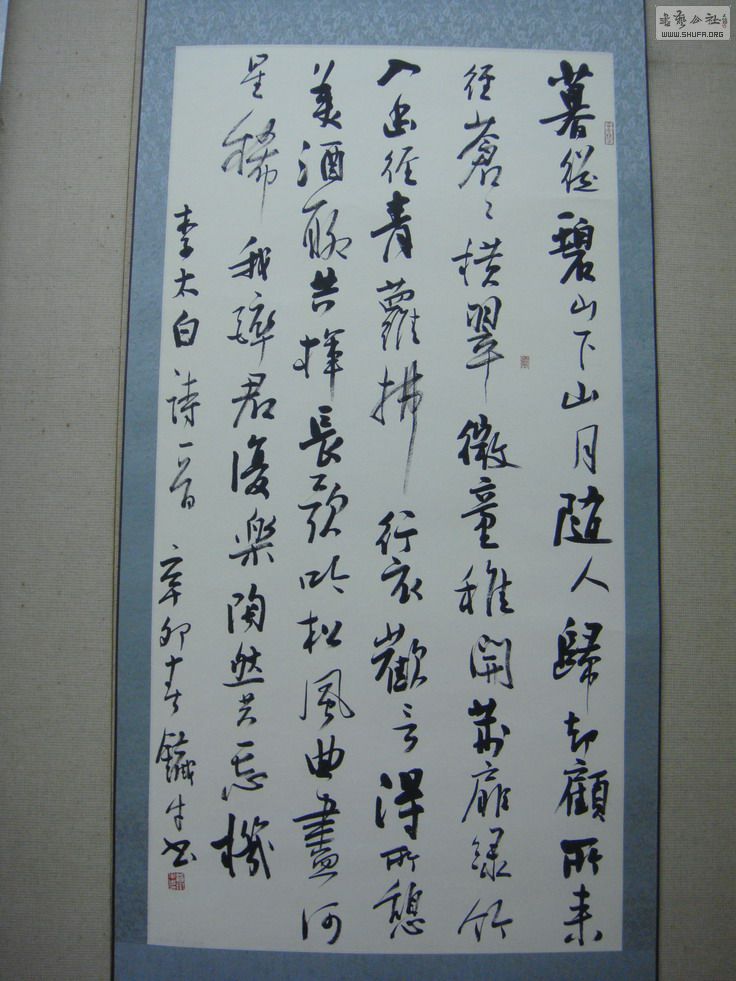 暮從碧山下山月隨人歸却顧所来
径蒼々横翠微童稚開荆扉緑竹
入幽径青蘿拂行衣歡言得所憩
美酒聊共揮長歌吟松風曲盡河
星稀我醉君復樂陶然共忘機
李太白詩一首 辛卯春 鐵牛书
書藝公社
WWW.SHUFA.ORG